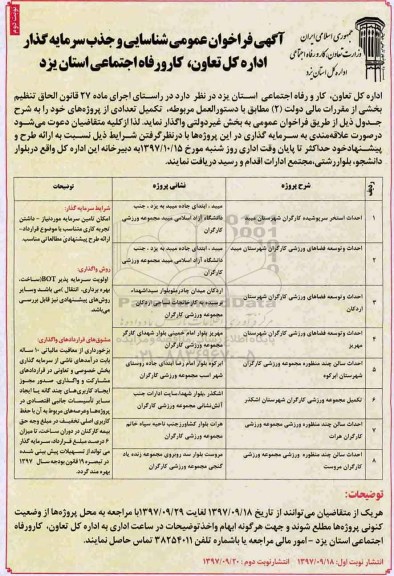 نوبت دوم
جمهوری اسلامی ایران
وزارت تعاون، کار و رفاه اجتماعی
اداره کل استان یزد
آگهی فراخوان عمومی شناسایی و جذب سرمایه گذار
اداره کل تعاون، کار و رفاه اجتماعی استان یزد
اداره کل تعاون، کار و رفاه اجتماعی استان یزد در نظر دارد در راستای اجرای ماده ۲۷ قانون الحاق تنظیم
بخشی از مقررات مالی دولت (۲) مطابق با دستورالعمل مربوطه، تکمیل تعدادی از پروژه‌های خود را به شرح
جدول ذیل از طریق فراخوان عمومی به بخش غیردولتی واگذار نماید. لذا از کلیه متقاضیان دعوت می‌شود
درصورت علاقه‌مندی به سرمایه گذاری در این پروژه‌ها با درنظرگرفتن شرایط ذیل نسبت به ارائه طرح و
پیشنهاد خود حداکثر تا پایان وقت اداری روز شنبه مورخ ۱۳۹۷/۱۰/۱۵ به دبیرخانه این اداره کل واقع در بلوار
دانشجو، بلوار رشتی، مجتمع ادارات اقدام و رسید دریافت نمایند.
ردیف شرح پروژه نشانی پروژه توضیحات
۱ احداث استخر سرپوشیده کارگران شهرستان میبد
میبد ، ابتدای جاده میبد به یزد ، جنب
دانشگاه آزاد اسلامی میبد مجموعه ورزشی
کارگران
۲ احداث و توسعه فضاهای ورزشی کارگران شهرستان میبد
میبد ، ابتدای جاده میبد به یزد ، جنب
دانشگاه آزاد اسلامی میبد مجموعه ورزشی
کارگران
۳ احداث و توسعه فضاهای ورزشی کارگران شهرستان
اردکان
اردکان میدان چادرملو بلوار سیدالشهداء
نرسیده به کارخانجات نساجی اردکان
مجموعه ورزشی کارگران
۴ احداث و توسعه فضاهای ورزشی کارگران شهرستان
مهریز
مهریز بلوار امام خمینی بلوار شهدای کارگر
مجموعه ورزشی کارگران
۵ احداث سالن چند منظوره مجموعه ورزشی کارگران
شهرستان ابرکوه
ابرکوه بلوار امام رضا ابتدای جاده روستای
شهر اسب مجموعه ورزشی کارگران
۶ تکمیل مجموعه ورزشی کارگران شهرستان اشکذر
اشکذر بلوار شهدا سایت ادارات جنب
آتش‌نشانی مجموعه ورزشی کارگران
۷ احداث سالن چند منظوره مجموعه ورزشی
کارگران هرات
هرات بلوار کشاورز جنب ناحیه سپاه خاتم
مجموعه ورزشی کارگران
۸ احداث سالن چند منظوره ورزشی مجموعه ورزشی
کارگران مروست
مروست بلوار سد روبروی مجموعه زنده یاد
گنجی مجموعه ورزشی کارگران
شرایط سرمایه گذار:
امکان تامین سرمایه موردنیاز - داشتن
تجربه کاری متناسب با موضوع قرارداد -
ارائه طرح پیشنهادی مطالعاتی مناسب.
روش واگذاری:
اولویت سرمایه پذیر BOT (ساخت،
بهره برداری، انتقال) می باشند و سایر
روش‌های پیشنهادی نیز قابل بررسی
می‌باشد.
مشوق‌های قراردادهای واگذاری:
برخورداری از معافیت مالیاتی ۱۰ ساله
بابت درآمدهای ناشی از سرمایه گذاری
بخش خصوصی و تعاونی در قراردادهای
مشارکت و واگذاری، صدور مجوز
ایجاد کاربری‌های چندگانه یا ایجاد
سایر تأسیسات جانبی اقتصادی در
پروژه‌ها و عرصه‌های مربوط به آن با حفظ
کاربری اصلی، تخفیف در مبلغ وجه حق
بیمه کارکنان در دوران ساخت، تا میزان
۶ درصد مبلغ قرارداد، سرمایه گذار
می تواند از تسهیلات پیش بینی شده
در تبصره ۱۹ قانون بودجه سال ۱۳۹۷
بهره مند گردد.
توضیحات:
هر یک از متقاضیان می‌توانند از تاریخ ۱۳۹۷/۰۹/۱۸ لغایت ۱۳۹۷/۰۹/۲۹ با مراجعه به محل پروژه‌ها از وضعیت
کنونی پروژه‌ها مطلع شوند و جهت هرگونه ابهام واخذ توضیحات در ساعت اداری به اداره کل تعاون، کار و رفاه
اجتماعی استان یزد - امور مالی مراجعه یا باشماره تلفن ۳۸۲۵۴۰۱۱ تماس حاصل نمایند.
انتشار نوبت اول: ۱۳۹۷/۰۹/۱۸ انتشار نوبت دوم: ۱۳۹۷/۰۹/۲۰